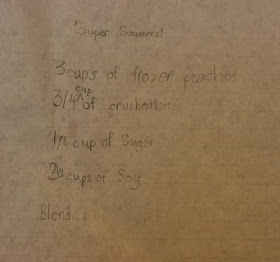 Super Summers!
3 cups of frozen peaches
3/4 cup of crushed Ice
cup of Sugar
cups of Soy
Blend